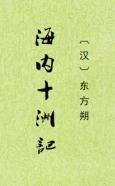 〔汉〕东方朔
海内十洲記